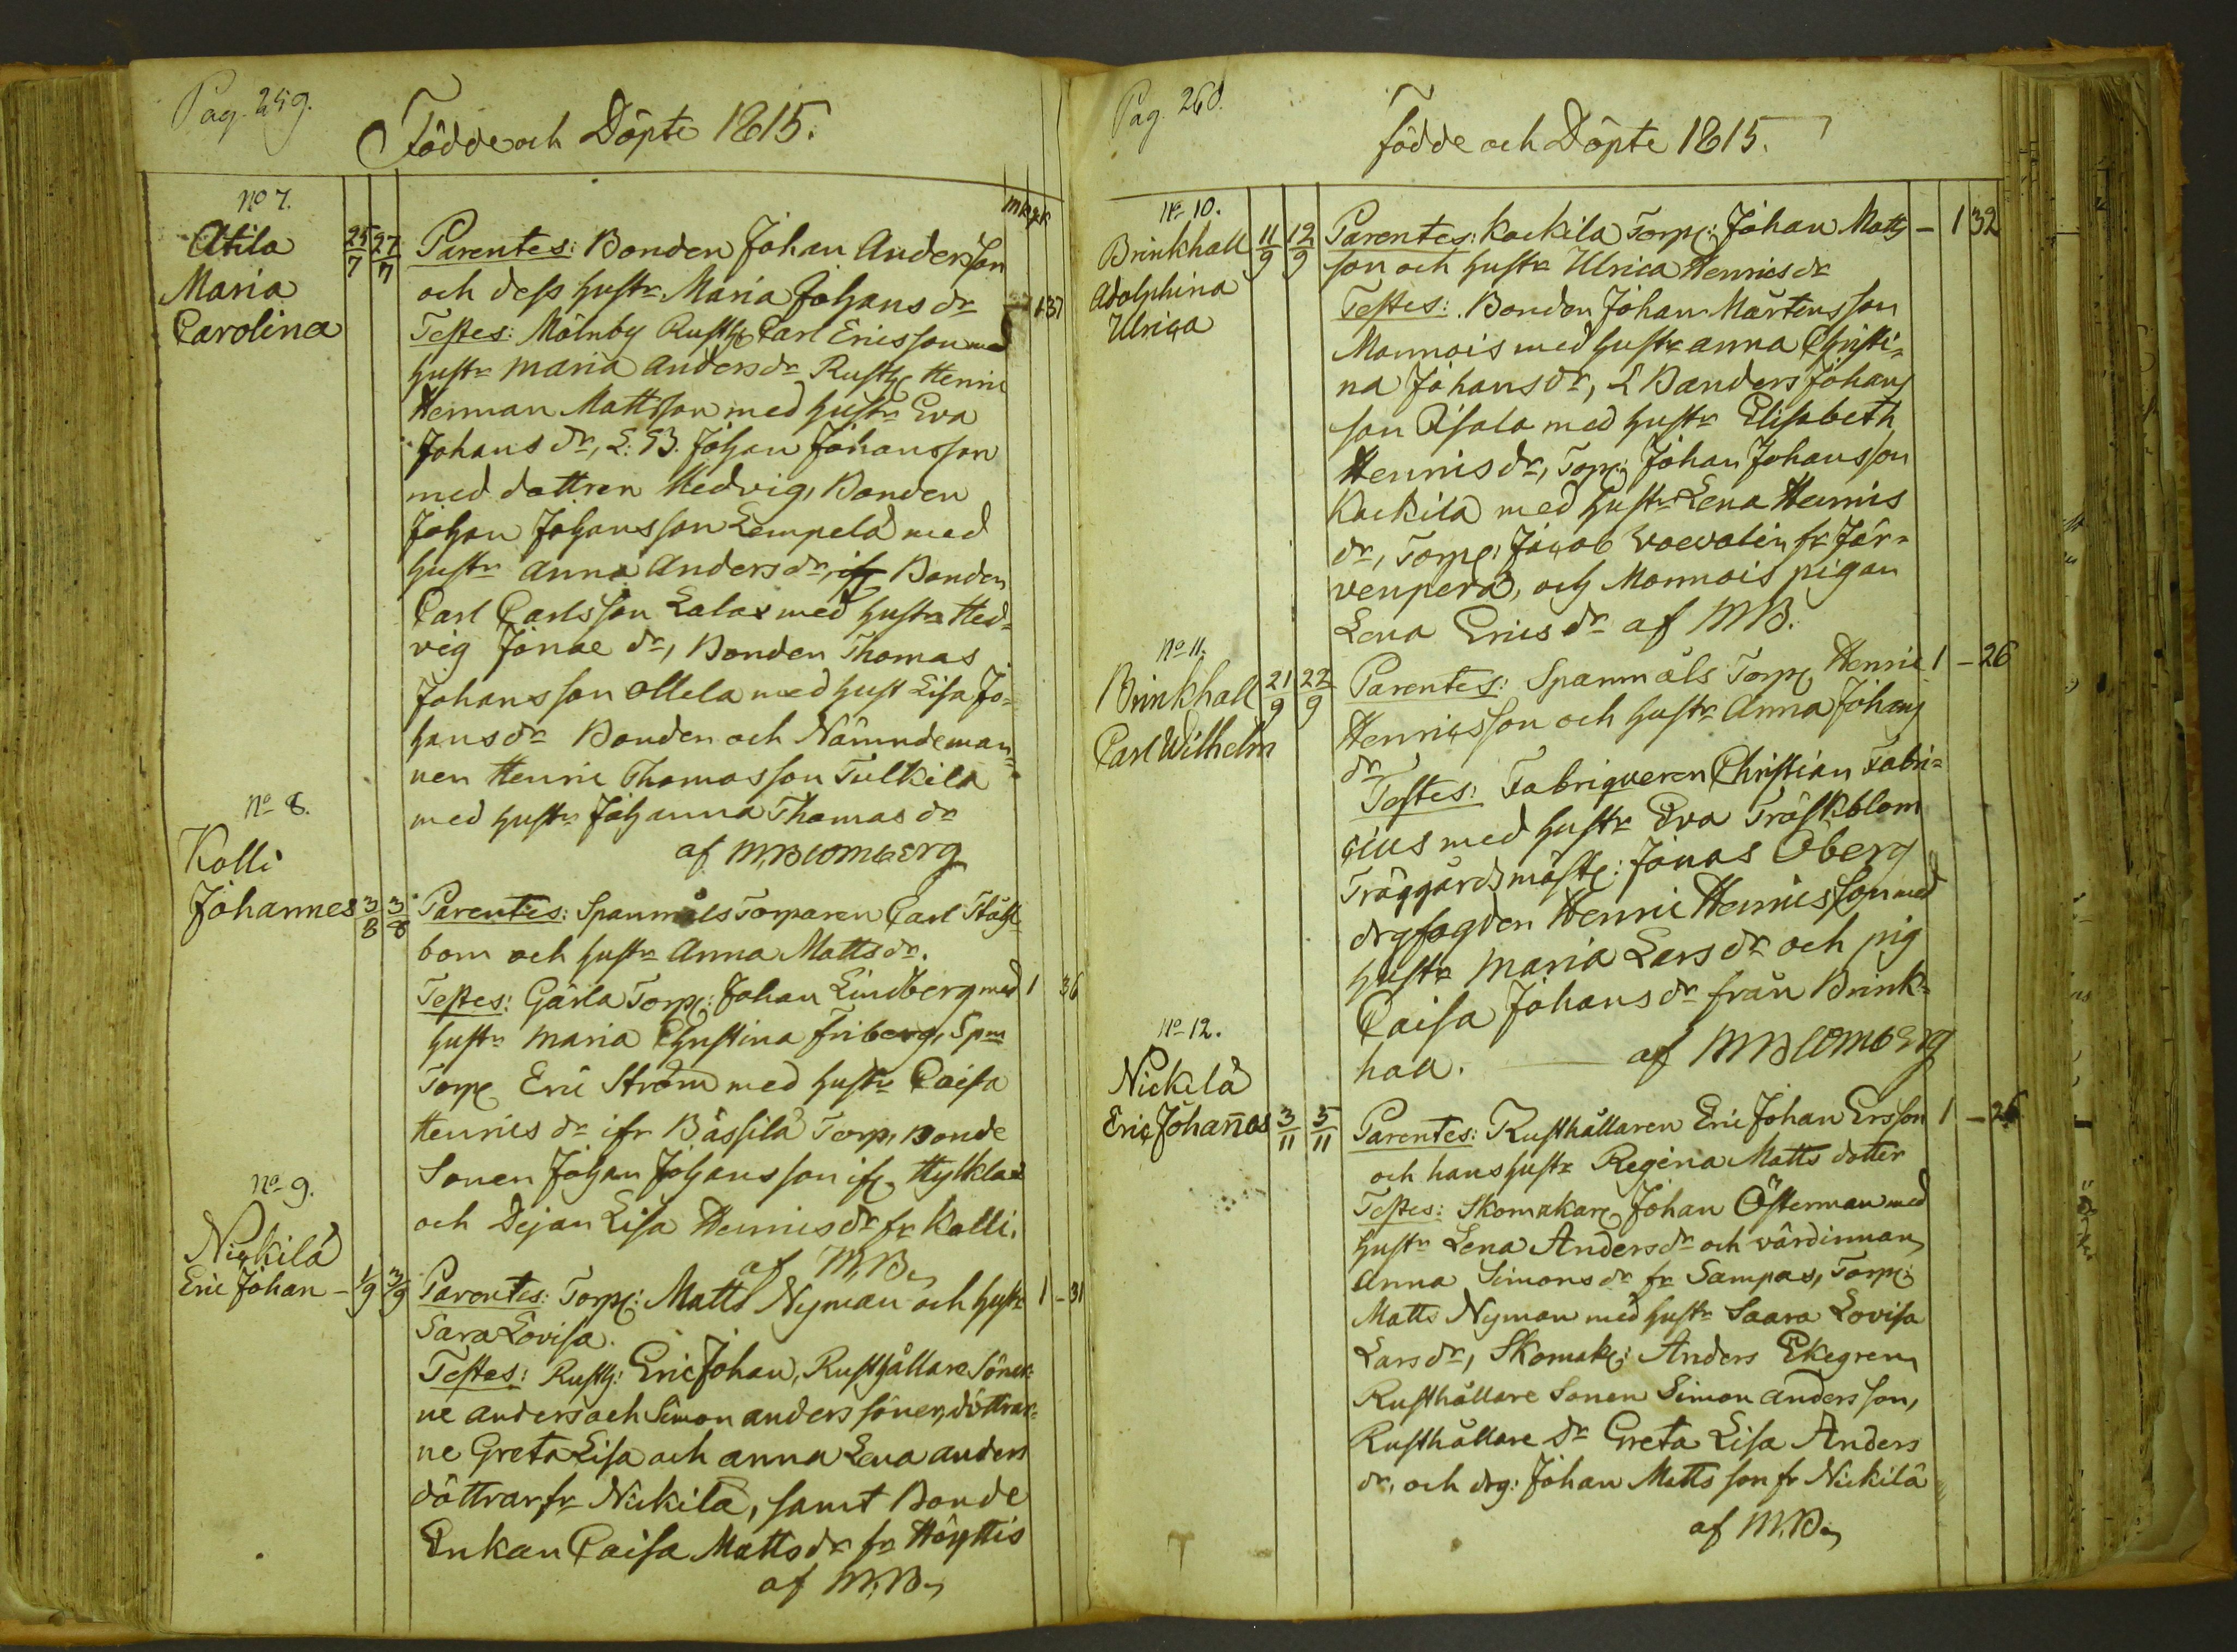 Pag. 259.
Födde och Döpte 1815.
No 7.
Atila
Maria
Carolina
25/7 27/7
Parentes: Bonden Johan Andersson
och dess hustr Maria Johans dr 1 37
Testes: Mälnby Rusth Carl Ericsson med
hustr Maria Anders dr Rusth Henric
Herman Mattsson med hustr Eva
Johans dr, L: B. Johan Johansson
med dottren Hedvig, Bonden
Johan Johansson Lempelä med
hustr Anna Anders dr, Bonden
Carl Carlsson Lalax med hustr Hed=
vig Jonae dr, Bonden Thomas
Johansson Ollela med hust Lisa Jo=
hans dr Bonden och Nämndeman=
nen Henric Thomasson Tulkila
med hustr Johanna Thomas dr
af M. Blomberg
No 8.
Kolli
Johannes 3/8 3/8
Parentes: Spanmåls Torparen Carl
bom och hustr Anna Matts dr.
Testes: Gärla Torp: Johan Lindberg med 1 36
hustr Maria Christina Friberg, Spm
Torp Eric Ström med hustr Caisa
Henrics dr ifr Bässilä Torp, Bonde
Sonen Johan Johansson ifr Hylklax
och Dejan Lisa Henrics dr fr Kolli.
af M.B.
No 9.
Nickilä
Eric Johan - 1/9 3/9
Parentes: Torp: Matts Nyman och hustr 1 - 31
Sara Lovisa.
Testes: Rusth: Eric Johan, Rusthållare Söner=
ne Anders och Simon Anders söner, döttrar=
ne Greta Lisa och Anna Lena Anders
döttrar fr Nickilä, samt Bonde
Enkan Caisa Matts dr fr Höyttis
af M.B.
Pag. 260.
Födde och Döpte 1815.
No 10.
Brinkhall
Adolphina
Ulrica
11/9 12/9
Parentes: Kackila Torp: Johan Matts - 1 32
son och hustr Ulrica Henrics dr
Testes: Bonden Johan Mårtensson
Monnois med hustr Anna Christi=
na Johans dr, L Banders Johans
son Äisala med hustr Elisabeth
Henrics dr, Torp: Johan Johansson
Kackila med hustr Lena Henrics
dr, Torp: Jacob Waevalin fr Jär=
venperä, och Monnois pigan
Lena Erics dr af M B.
No 11.
Brinkhall
Carl Wilhelm
21/9 22/9
Parentes: Spanmåls Torp Henric 1 - 26
Henricsson och hustr Anna Johans
dr
Testes: Fabriqveren Christian Fabri=
cius med hustr Eva Träskblom
Träggårdsmäst: Jonas Öberg
drgfogden Henric Henricsson med
hustr Maria Lars dr och pig
Caisa Johans dr från Brink=
hall. af M Blomberg
No 12.
Nickilä
Eric Johannes 3/11 5/11
Parentes: Rusthållaren Eric Johan Ersson 1 - 26
och hans hustr Regina Matts dotter
Testes: Skomakare Johan Österman med
hustr Lena Anders dr och värdinnan
Anna Simons dr fr Sampas, Torp:
Matts Nyman med hustr Saara Lovisa
Lars dr, Skomak: Anders Ekegren
Rusthållare Sonen Simon Andersson,
Rusthållare dr Greta Lisa Anders
dr, och drg: Johan Mattsson fr Nickilä
af M.B.